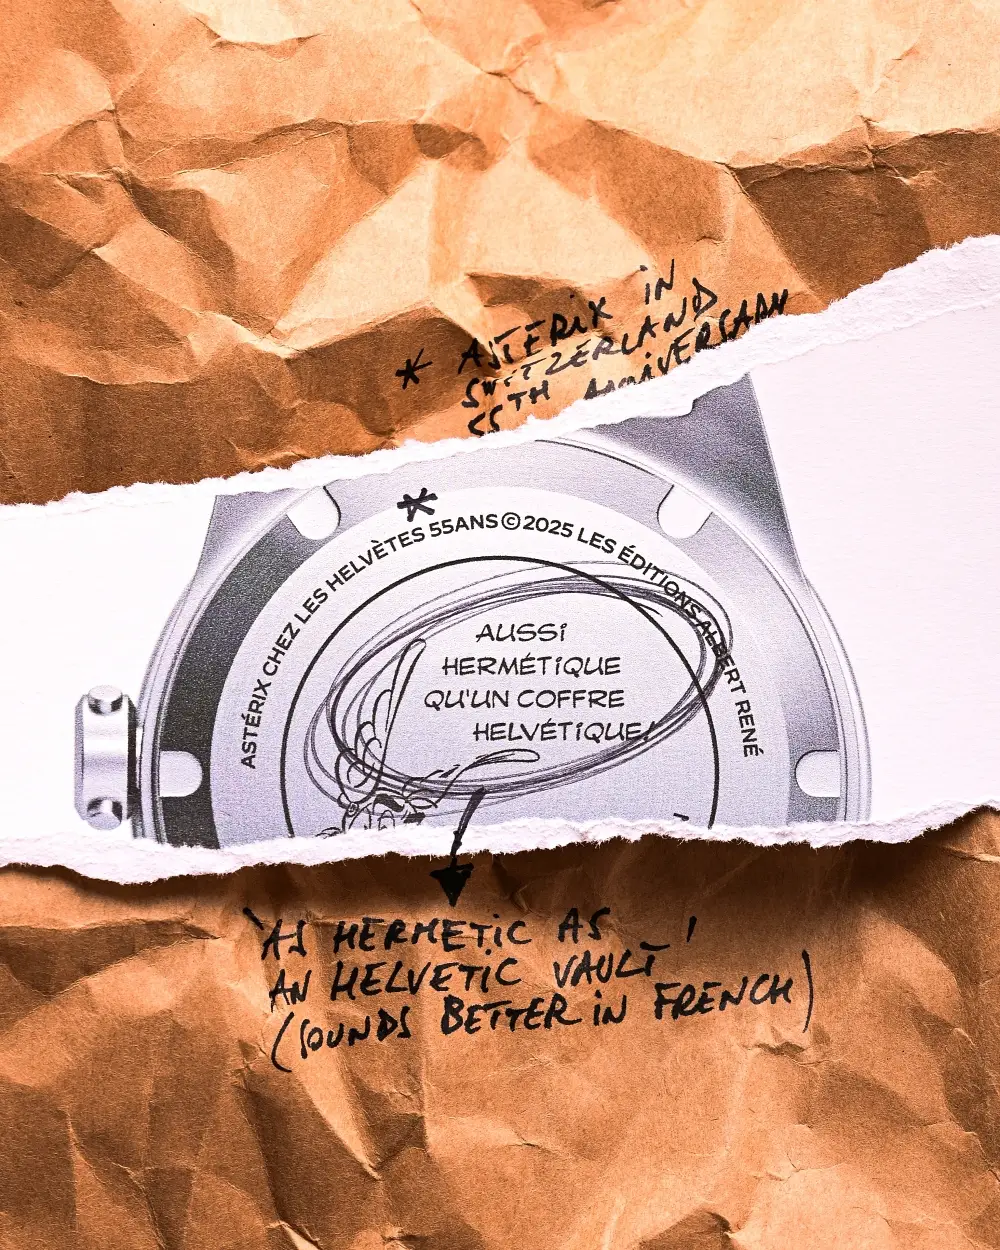 * ASTERIX IN
SWITZERLAND
55TH ANNIVERSARY
*
ASTÉRIX CHEZ LES HELVÈTES 55ANS © 2025 LES ÉDITIONS ALBERT RENÉ
AUSSI
HERMÉTIQUE
QU'UN COFFRE
HELVÉTIQUE!
'AS HERMETIC AS
AN HELVETIC VAULT'
(SOUNDS BETTER IN FRENCH)